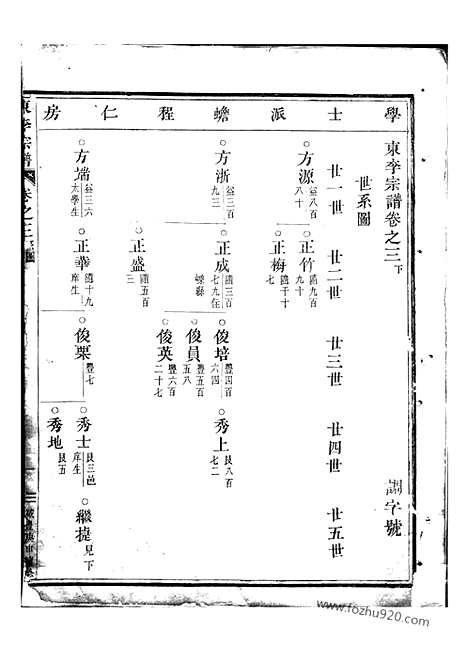 學士派蟾程仁房
東李宗譜卷之三下
調字號
世系圖
廿一世 廿二世 廿三世 廿四世 廿五世
方源 益八百八十
正竹 國九百九十
正梅 國千十七
方浙 益三百九三
正成 國三百七九住嵊縣
俊培 豐四百六四
秀上 艮八百七二
俊員 豐五百五八
俊英 豐六百二十七
正盛 國五百三
方端 益三六太學生
正華 國十九庠生
俊栗 豐七
秀士 艮三邑庠生
繼捷 見下
秀地 艮五
東李宗譜 卷之三
www.fozhu920.com